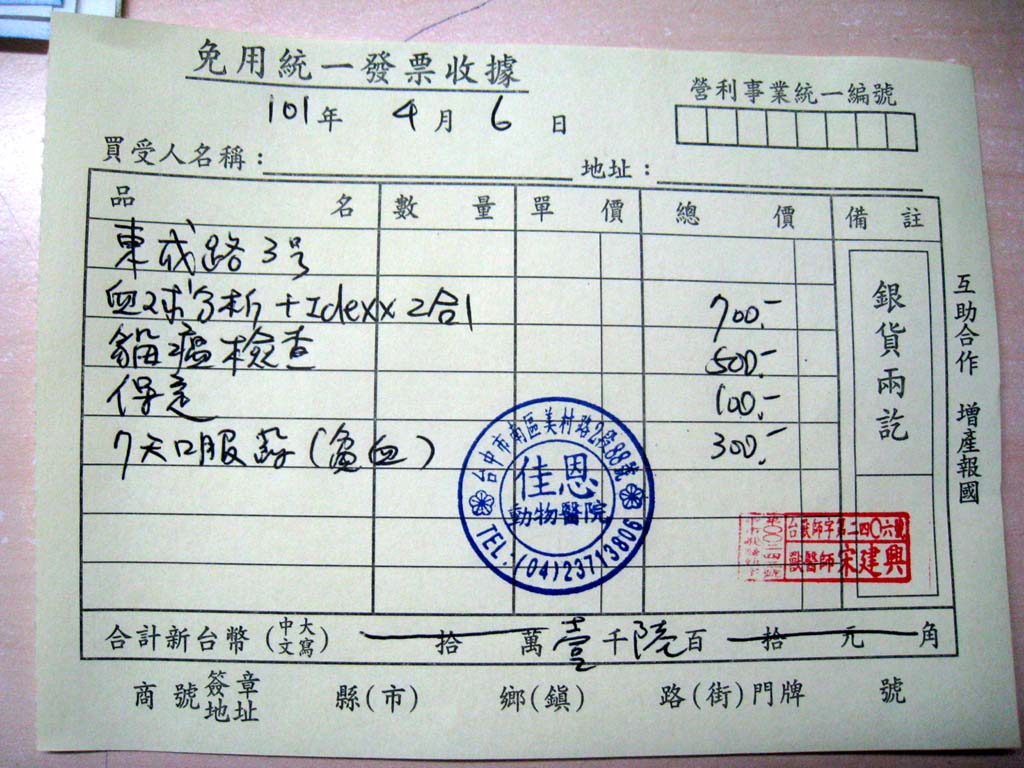 免用統一發票收據
營利事業統一編號
101年 4月 6日
買受人名稱： 地址：
品名 數量 單價 總價 備註
東成路3号
血球分析+Idexx 2合1 700.-
貓瘟檢查 500.-
保定 100.-
7天口服藥(貧血) 300.-
銀貨兩訖
互助合作 增產報國
台中市南區美村路2段88號
佳恩
動物醫院
TEL:(04)23713806
獸醫師 宋建興
合計新台幣(中文大寫) 拾 萬 壹 千 陸 百 拾 元 角
商號簽章地址 縣(市) 鄉(鎮) 路(街)門牌 號